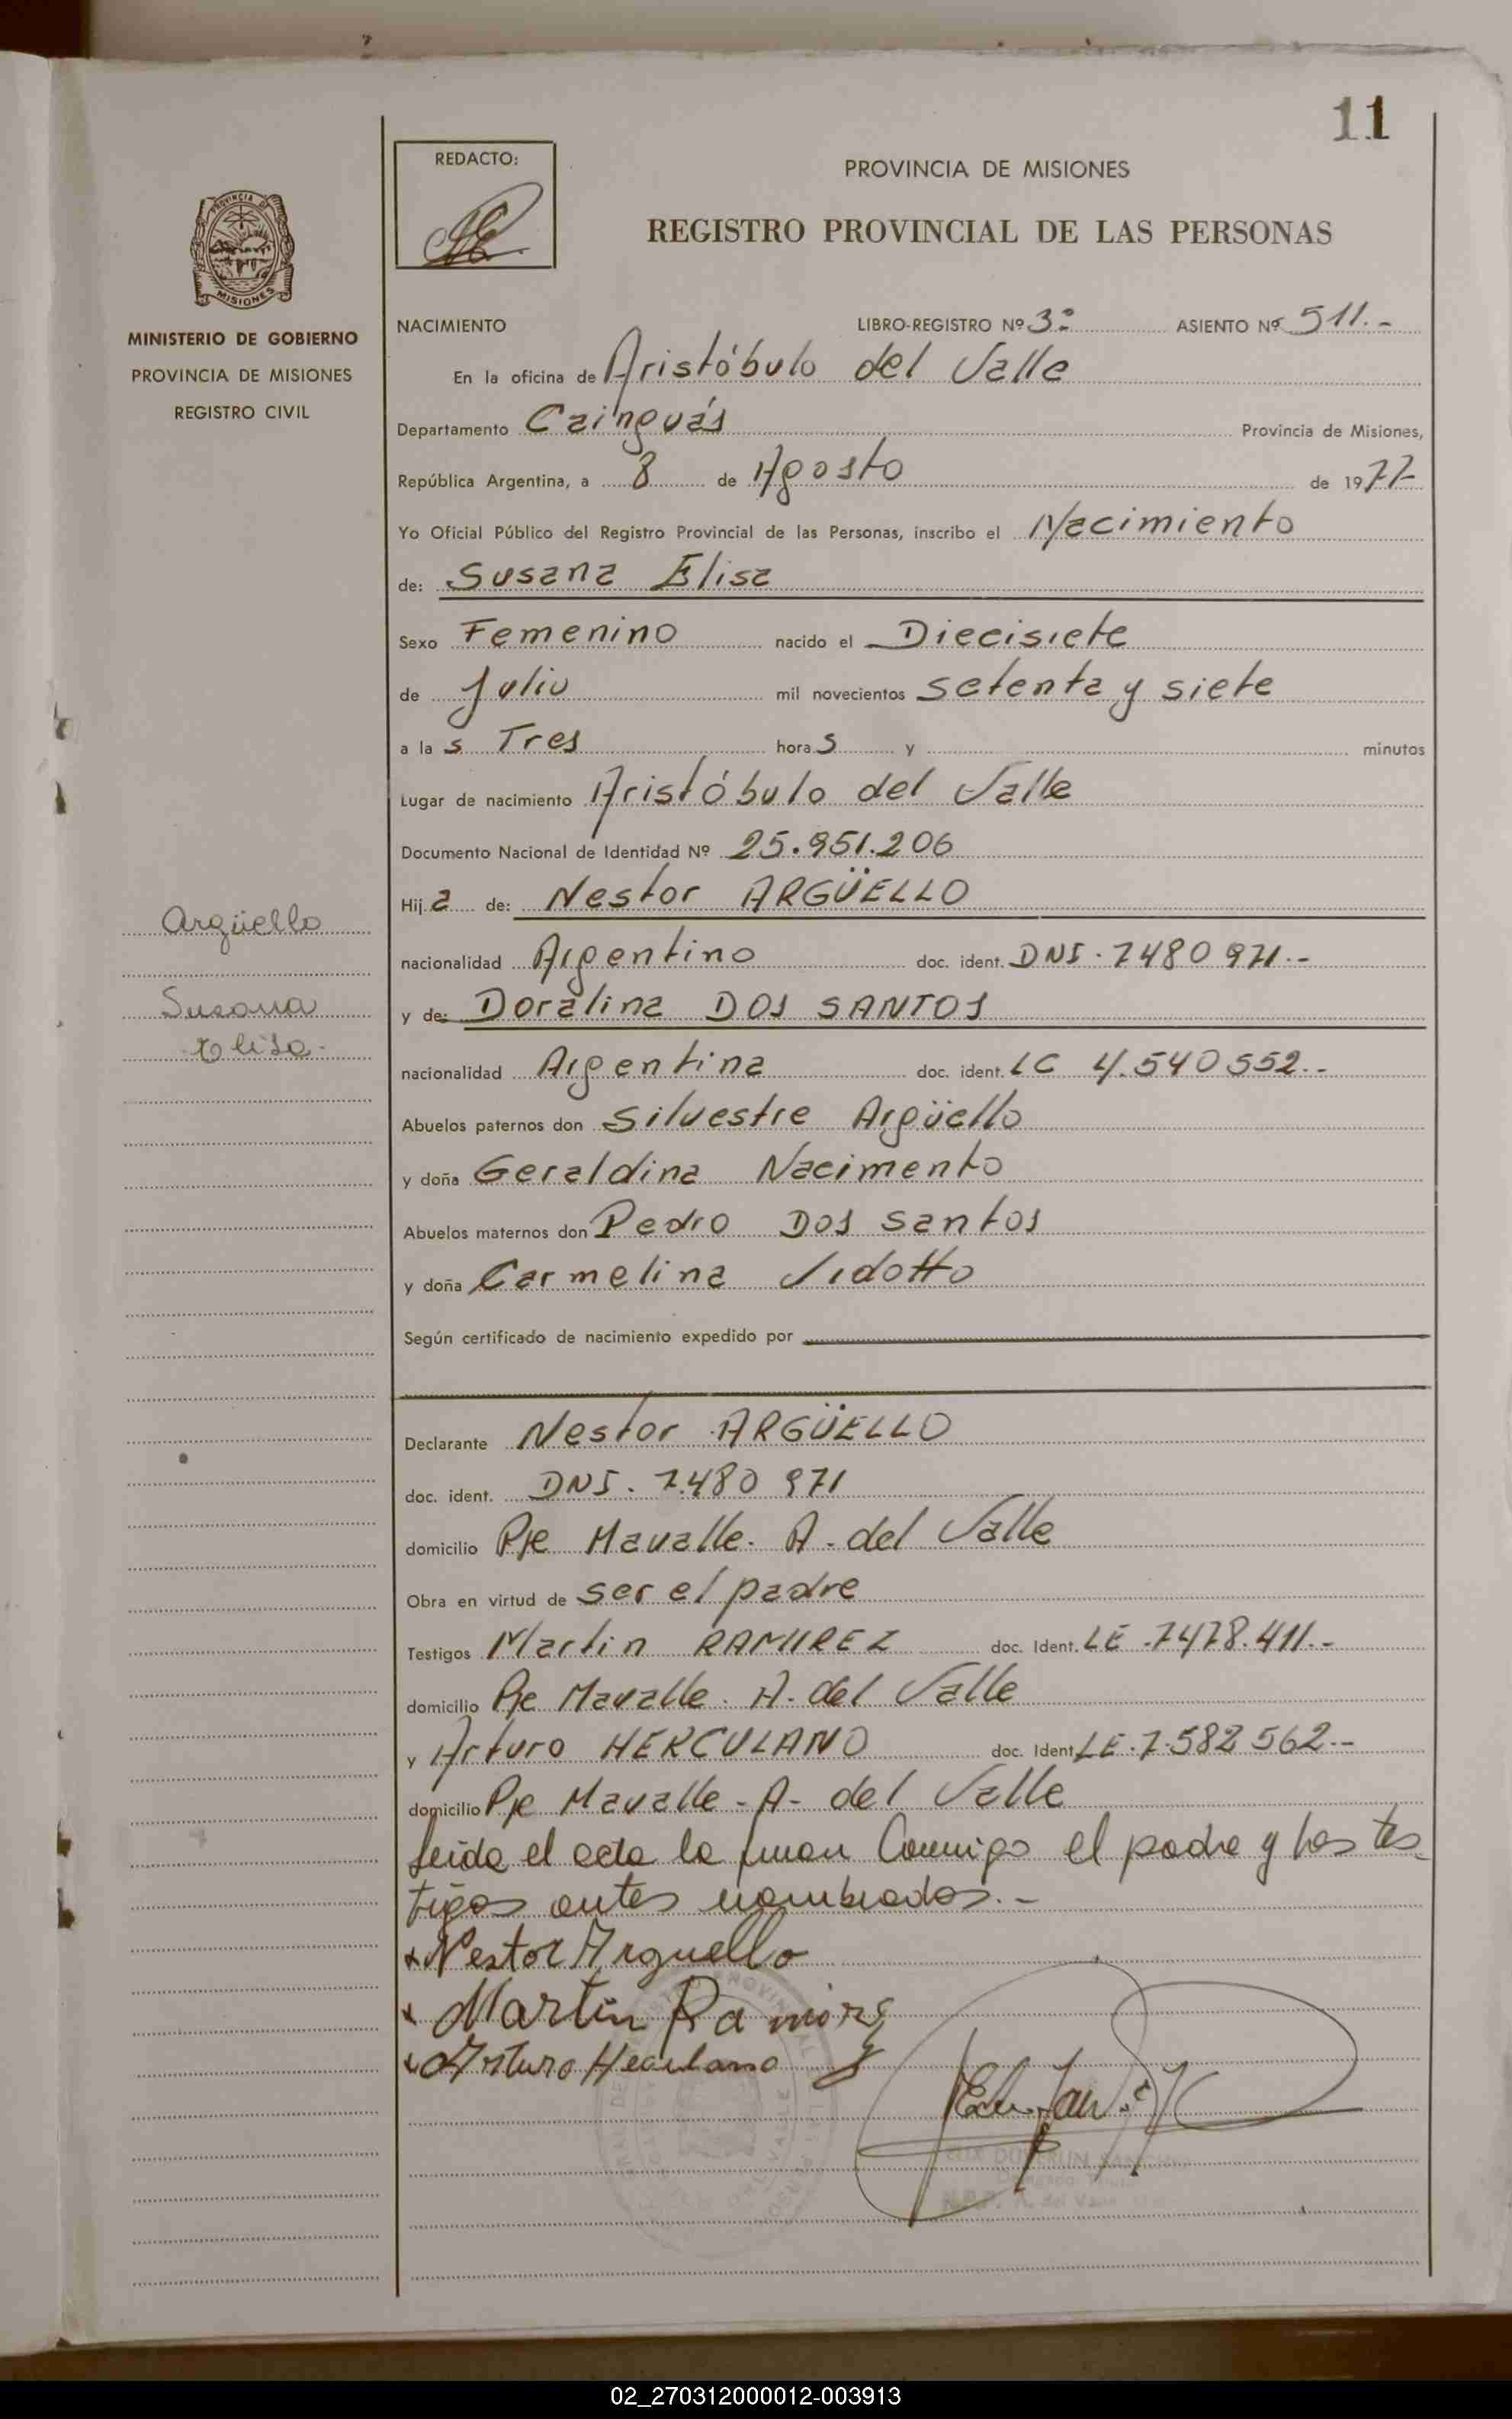 11
REDACTO:
PROVINCIA DE MISIONES
REGISTRO PROVINCIAL DE LAS PERSONAS
PROVINCIA DE
MISIONES
MINISTERIO DE GOBIERNO
PROVINCIA DE MISIONES
REGISTRO CIVIL
NACIMIENTO LIBRO-REGISTRO Nº 3º ASIENTO Nº 511.-
En la oficina de Aristóbulo del Valle
Departamento Cainguás Provincia de Misiones,
República Argentina, a 8 de Agosto de 1977
Yo Oficial Público del Registro Provincial de las Personas, inscribo el Nacimiento
de: Susana Elisa
Sexo Femenino nacido el Diecisiete
de Julio mil novecientos setenta y siete
a la s Tres hora s y minutos
Lugar de nacimiento Aristóbulo del Valle
Documento Nacional de Identidad Nº 25.951.206
Hij a de: Nestor ARGÜELLO
Argüello
nacionalidad Argentino doc. ident. DNI. 7480 971.-
Susana
y de: Doralina DOS SANTOS
Elisa.-
nacionalidad Argentina doc. ident. LC 4.540552.-
Abuelos paternos don Silvestre Argüello
y doña Geraldina Nacimento
Abuelos maternos don Pedro Dos santos
y doña Carmelina Vidotto
Según certificado de nacimiento expedido por
Declarante Nestor ARGÜELLO
doc. ident. DNI. 7.480 971
domicilio Pje Mavalle. A. del Valle
Obra en virtud de ser el padre
Testigos Martin RAMIREZ doc. Ident. LE.7478.411.-
domicilio Pje Mavalle. A. del Valle
y Arturo HERCULANO doc. Ident. LE.7.582 562.-
domicilio Pje Mavalle - A- del Valle
leida el acta la firman Conmigo el padre y los tes
tigos antes nombrados.-
x Nestor Arguello
x Martin Ramirez
x Arturo Herculano
02_270312000012-003913